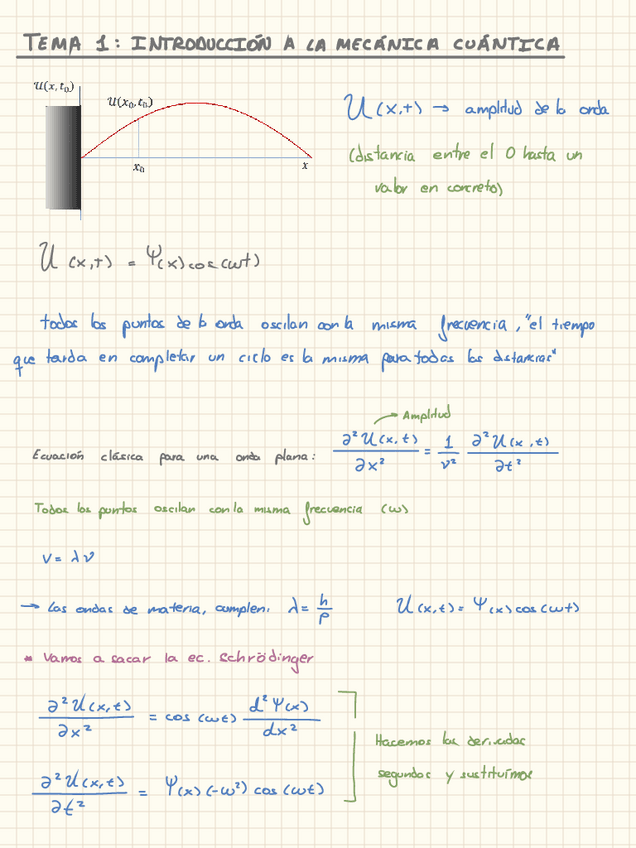 TEMA 1: INTRODUCCIÓN A LA MECÁNICA CUÁNTICA
u(x,t₀)
u(x₀,t₀)
x₀
x
U(x,t) → amplitud de la onda
(distancia entre el 0 hasta un
valor en concreto)
U(x,t) = Ψ(x) cos(ωt)
todos los puntos de la onda oscilan con la misma frecuencia, "el tiempo
que tarda en completar un ciclo es la misma para todas las distancias"
Amplitud
Ecuación clásica para una onda plana: ∂²U(x,t)/∂x² = 1/v² ∂²U(x,t)/∂t²
Todos los puntos oscilan con la misma frecuencia (ω)
v = λν
→ Las ondas de materia, cumplen: λ = h/p U(x,t) = Ψ(x) cos(ωt)
* Vamos a sacar la ec. Schrödinger
∂²U(x,t)/∂x² = cos(ωt) d²Ψ(x)/dx²
Hacemos las derivadas
segundas y sustituimos
∂²U(x,t)/∂t² = Ψ(x) (-ω²) cos(ωt)